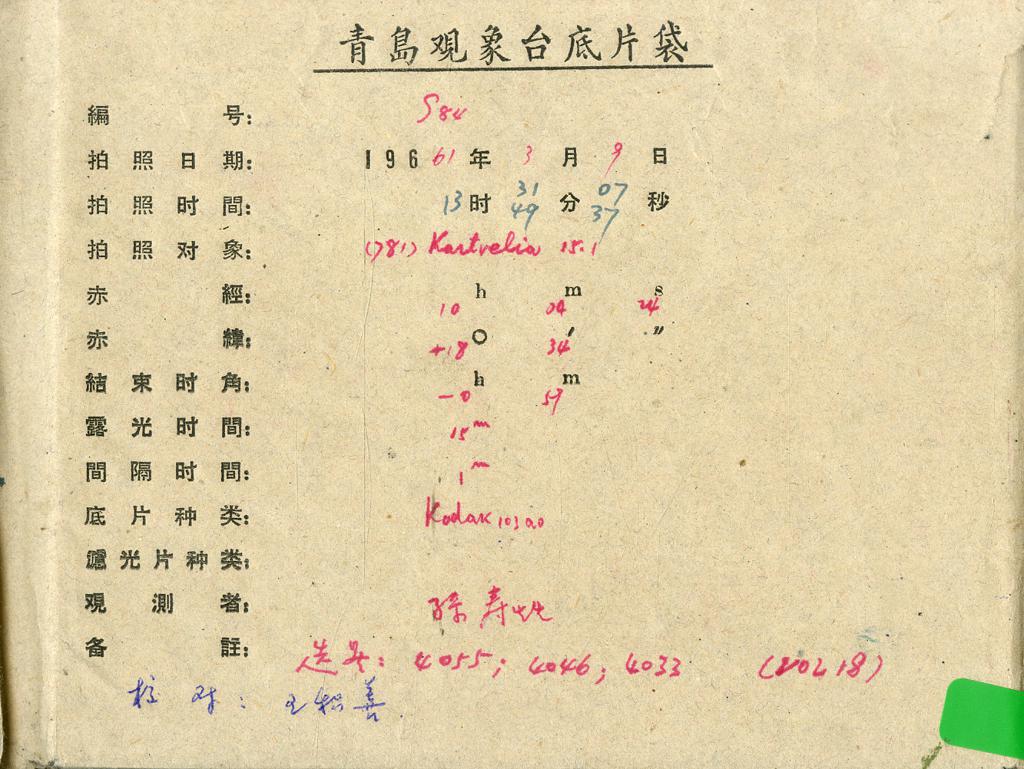 青島观象台底片袋
編号: S84
拍照日期: 196 61年 3月 9日
拍照时間: 13时 31分 07秒
49 37
拍照对象: (781) Kartvelia 15.1
赤經: 10h 04m 24s
赤緯: +18° 34′ ″
結束时角: -0h 59m
露光时間: 15m
間隔时間: 1m
底片种类: Kodak 103aO
濾光片种类:
观測者: 孫寿
备註: 选号: 4055; 4046; 4033 (20L18)
校对: 王积善